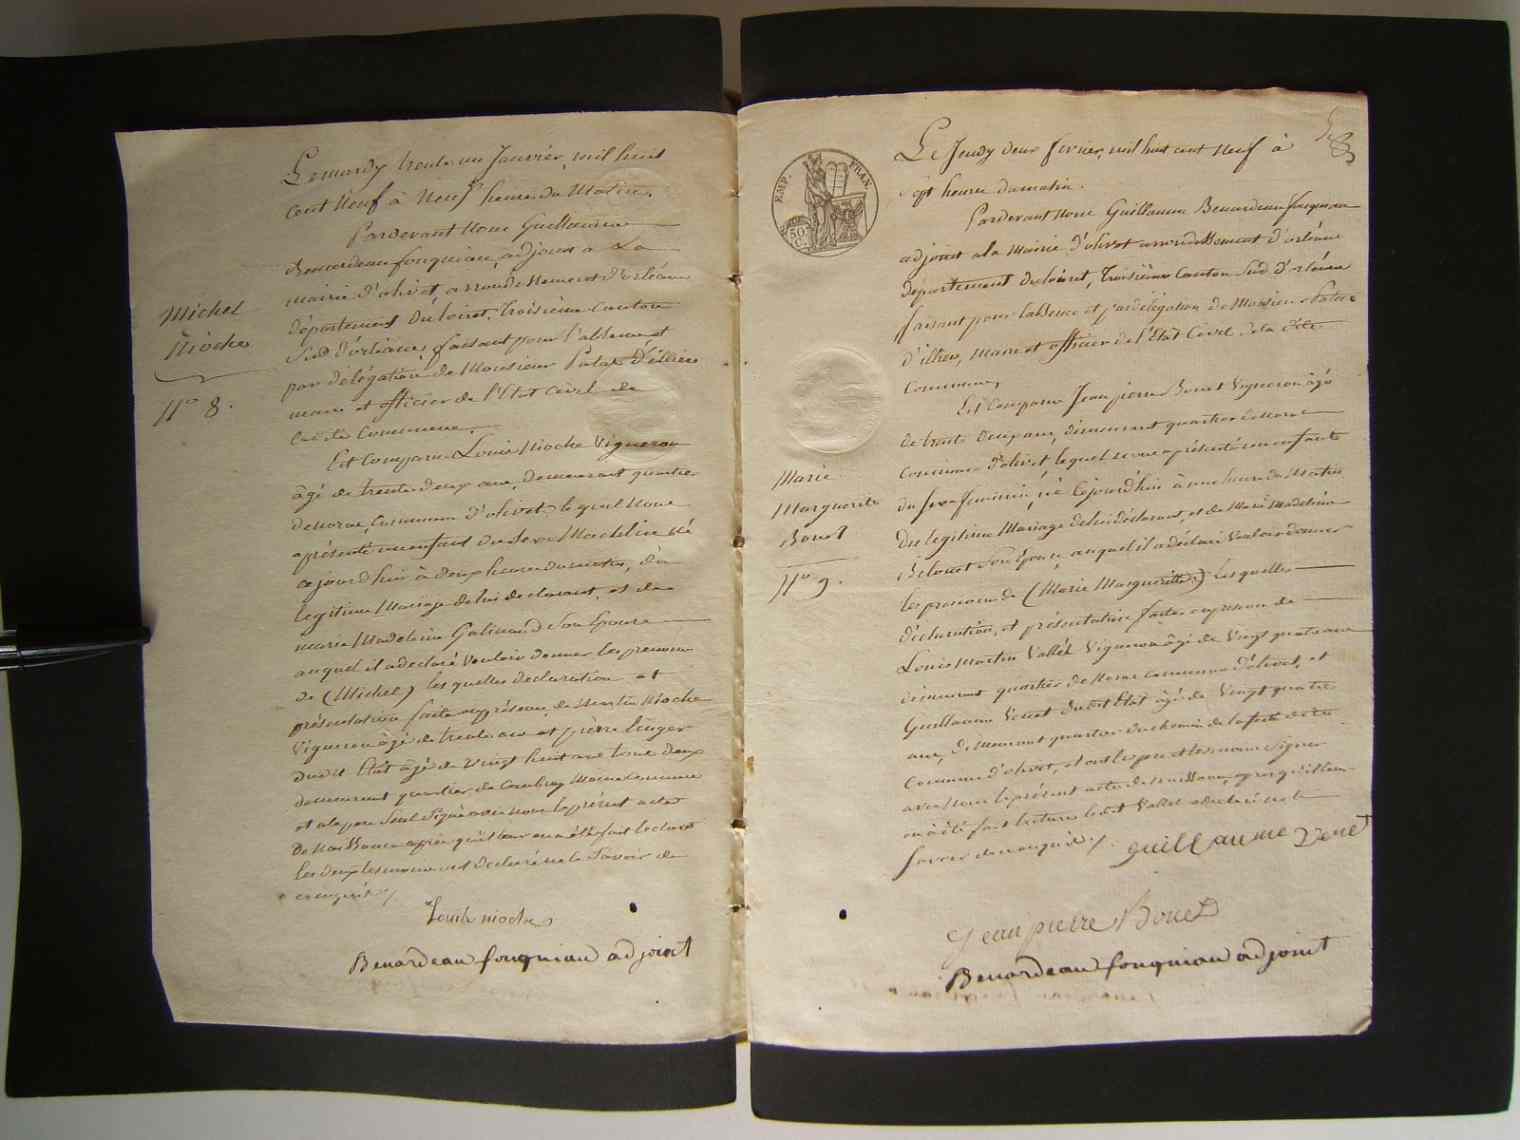 Le mardy trente un Janvier, mil huit
cent Neuf à Neuf heures du Matin.
Pardevant Nous Guillaume
Benardeau fougniau, adjoint a La
mairie d'olivet, arrondissement d'orléans
département du loiret, troisième Canton
Sud d'orléans, faisant pour l'absence et
par délégation de Monsieur Patas d'illiers
maire et officier de l'Etat Civil de
Commune.
Michel
Mioche
N° 8.
Est Comparu Louis Mioche Vigneron
âgé de trente deux ans, demeurant quartier
de Commune d'olivet, lequel Nous
a présenté un enfant du Sexe Masculin Né
cejourdhui à deux heures du matin, du
legitime Mariage de lui declarant, et de
marie Madeleine Son Epouse
auquel il a declaré Vouloir donner les prenoms
de (Michel) les quelles declaration et
présentation faite en présence de Martin Mioche
Vigneron âgé de trente ans et pierre
dudit Etat âgé de Vingt huit ans tous deux
demeurant quartier de Commune
et a le pere Seul Signé avec nous le présent acte
de Naissance après qu'il leur en a été fait lecture
les deux temoins ont declaré ne le Savoir de
ce enquis /.
Louis mioche
Benardeau fougniau adjoint
EMP. FRAN.
50
Le Jeudy deux fevrier, mil huit cent Neuf à
Sept heures du matin.
Pardevant Nous Guillaume Benardeau fougniau
adjoint a la Mairie d'olivet arrondissement d'orléans
département du loiret, Troisième Canton Sud d'orléans
faisant pour l'absence et par délégation de Monsieur Patas
d'illiers, Maire et officier de l'Etat Civil de la dite
Commune,
Est Comparu Jean pierre Bouet Vigneron âgé
de trente ans, demeurant quartier
Commune d'olivet lequel nous a présenté un enfant
du sexe feminin, né Cejourdhui à une heure du Matin
Du legitime Mariage de lui déclarant, et de Marie Madeleine
Son Epouse, auquel il a déclaré Vouloir donner
les prenoms de (Marie Marguerite) les quelles
déclaration, et présentation faite en présence de
Louis Martin Vallée Vigneron âgé de Vingt quatre ans
demeurant quartier de Commune d'olivet, et
Guillaume Venet dudit Etat âgé de Vingt quatre
ans, demeurant quartier du chemin de la
Commune d'olivet, et ont le pere et temoin Signer
avec nous le présent acte de naissance, après qu'il leur
en a été fait lecture ledit Vallée a declaré ne le
Savoir de ce enquis /.
Marie
Marguerite
Bouet
N° 9.
guillaume Venet
Jean pierre Bouet
Benardeau fougniau adjoint